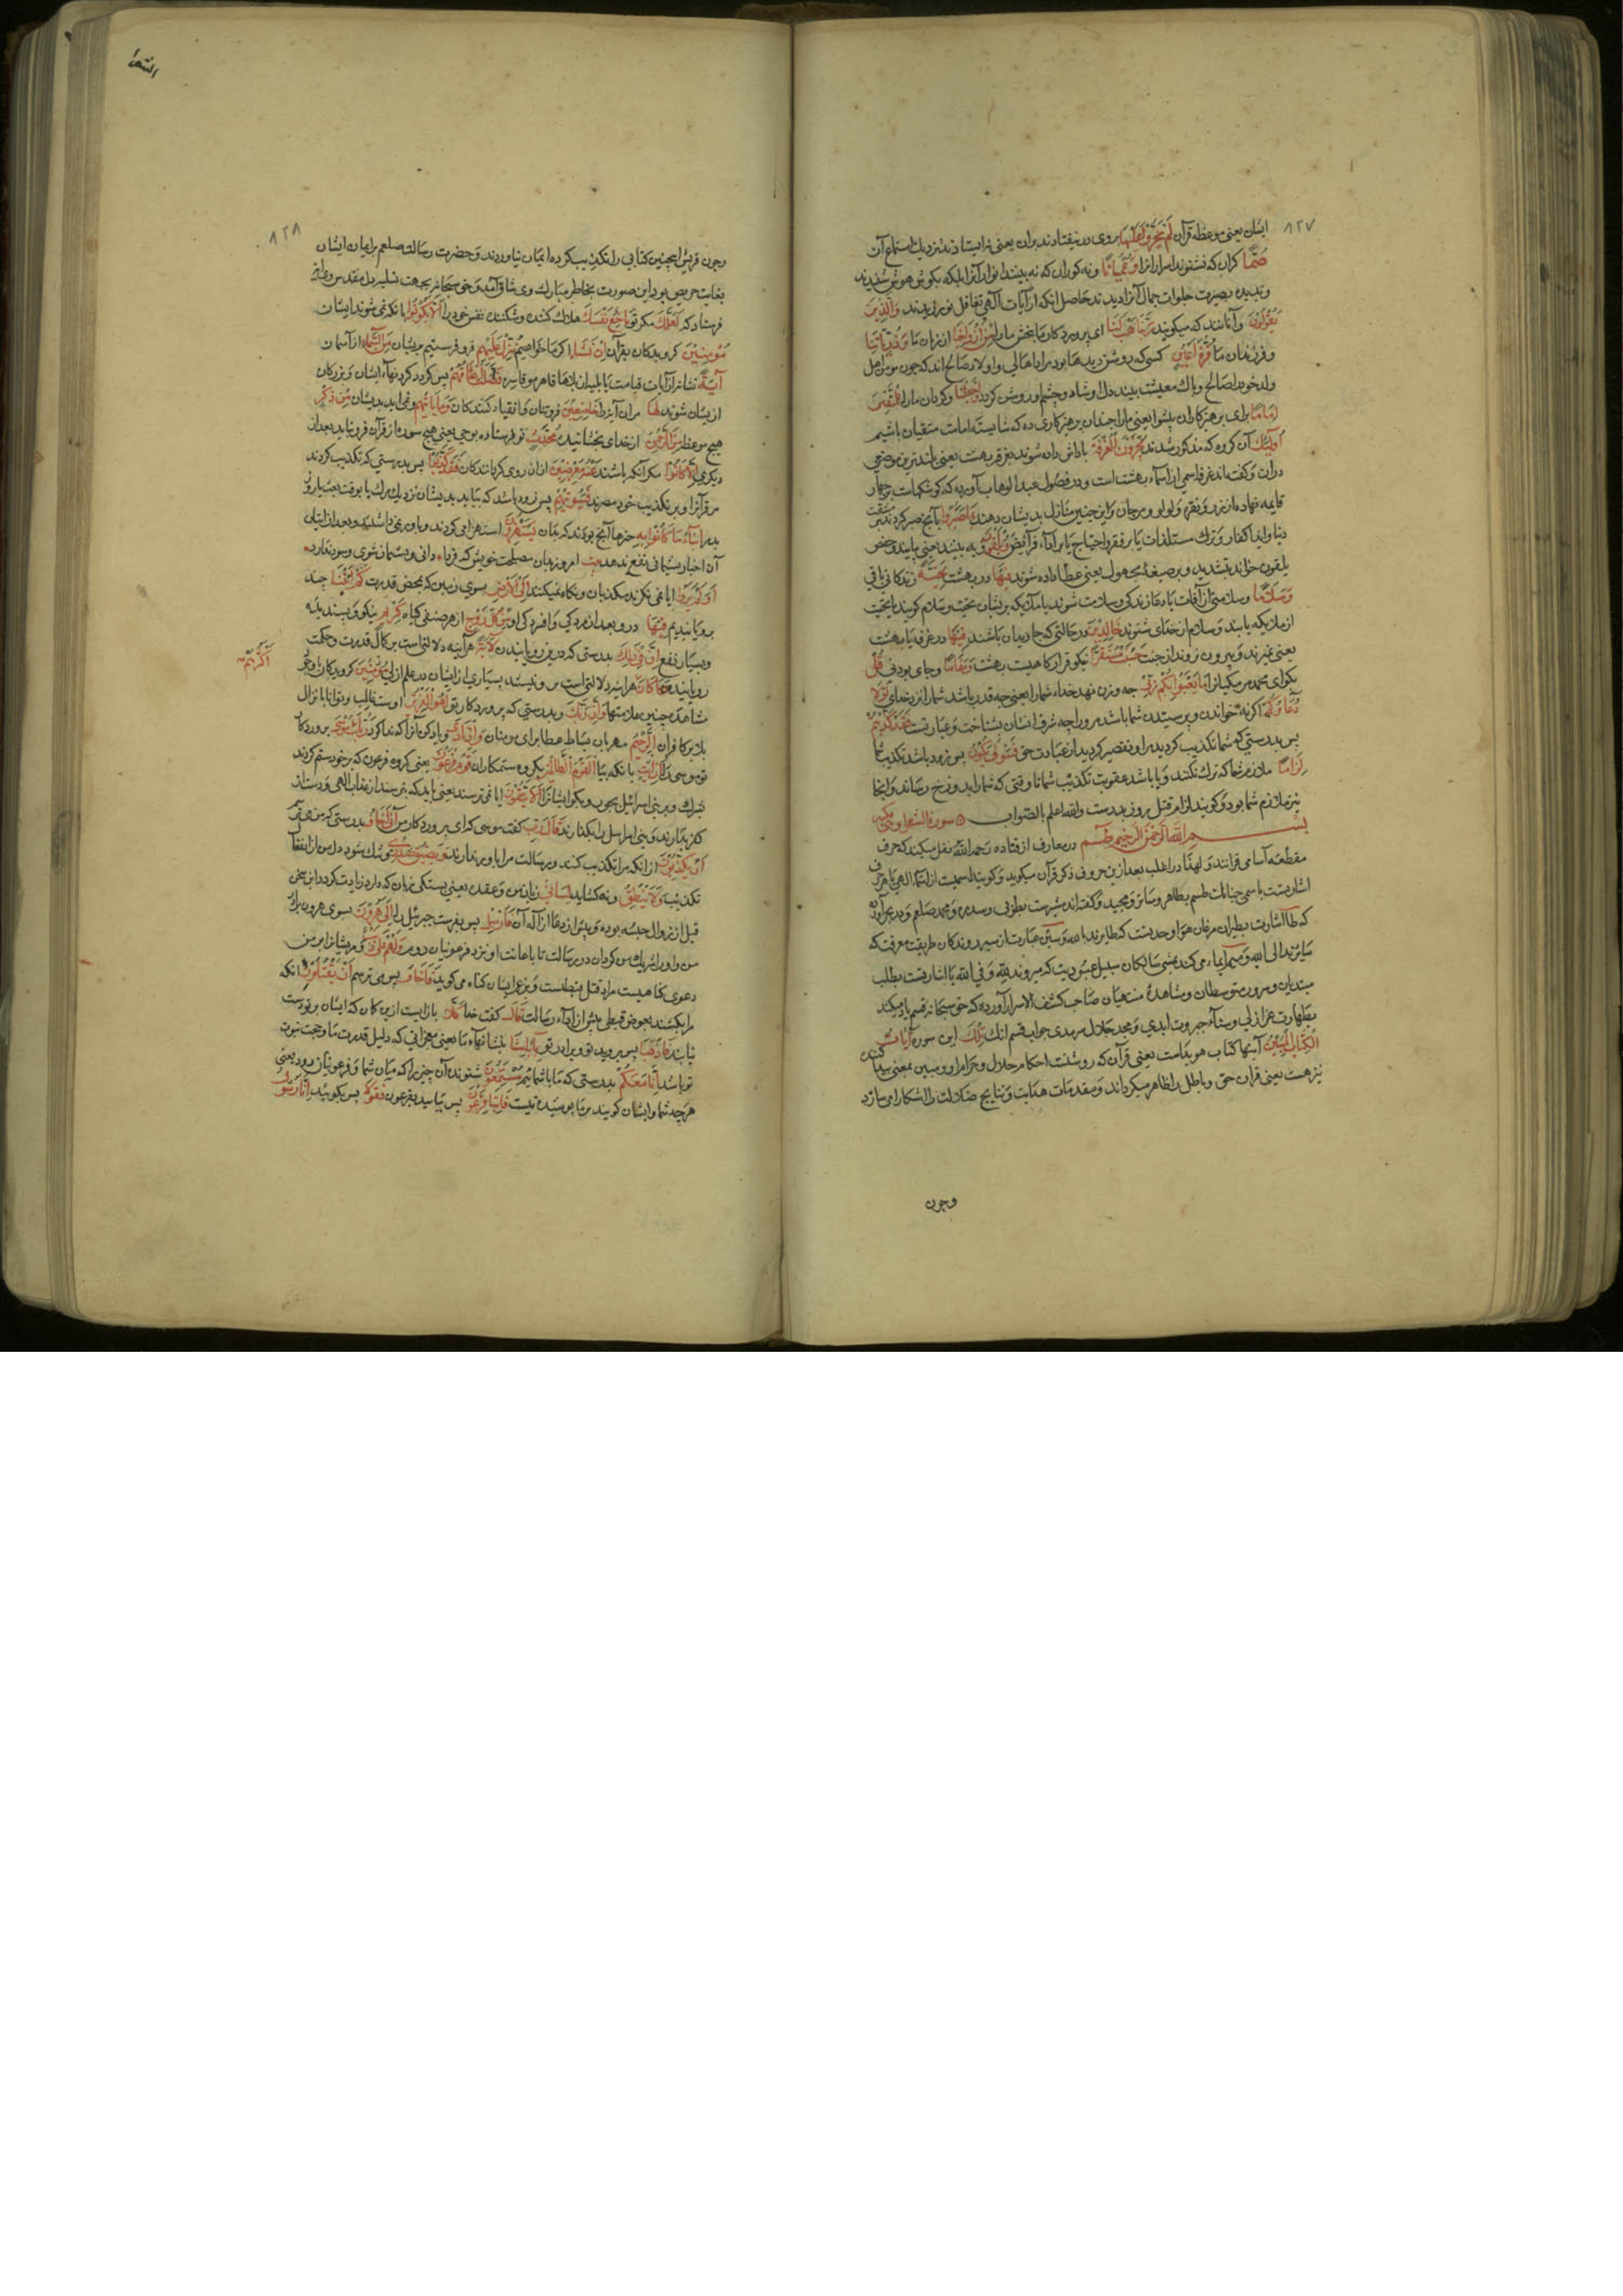 ٨٢٧
ایشان یعنی موعظه قرآن لَمْ يَخِرُّوا عَلَيْهَا بروی در نیفتادند بران یعنی نه ایستادند نزدیك استماع آن
صُمًّا کران که نشنوند اسرار آنرا وَعُمْيَانًا و نه کوران که نه بینند انوار آنرا بلکه بکوش هوش شنیدند
و بدیده بصیرت جلوات جمال آنرا دیدند حاصل انکه از آیات الهی تغافل نورزیدند وَالَّذِينَ
يَقُولُونَ و آنانند که میکویند رَبَّنَا هَبْ لَنَا ای پروردکار ما بخش ما را مِنْ أَزْوَاجِنَا از زنان ما وَذُرِّيَّاتِنَا
و فرزندان ما قُرَّةَ أَعْيُنٍ کسی که روشن دیدها بود مراد اهالی و اولاد صالح اند که چون مومن اهل
ولد خود را صالح و پاك معیشت بیند دل او شاد و چشم او روشن کردد وَاجْعَلْنَا و کردان ما را لِلْمُتَّقِينَ
إِمَامًا برای پرهیزکاران پیشوا یعنی ما را چندان پرهیزکاری ده که شایسته امامت متقیان باشیم
أُولَئِكَ آن کروه که مذکور شدند يُجْزَوْنَ الْغُرْفَةَ پاداش داده شوند بغرفه بهشت یعنی بلندترین موضعی
دران و کفته اند غرفه اسمی از اسماء بهشت است و در فصول عبد الوهاب آورده که کوشکهاست بر چهار
قایمه نهاده از زر و نقره و لولو و مرجان و این چنین منازل بدیشان دهند بِمَا صَبَرُوا بآنچ صبر کردند بر مشقت
دنیا و ایذا کفار و ترك مستلذات یا بر فقر و احتیاج یا بر اداء فرایض وَيُلَقَّوْنَ و به بینند یعنی یابند و حفص
یلقون خواند بتشدید و بر صیغهٔ مجهول یعنی عطا داده شوند فِيهَا در بهشت تَحِيَّةً زندکانی باقی
وَسَلَامًا و سلامتی از آفات یا دعا زندکی و سلامت شوند یا ملایکه بریشان تحیت و سلام کویند یا تحیت
از ملایکه یابند و سلام از خدای شنوند خَالِدِينَ در حالتی که جاویدان باشند فِيهَا در غرفه یا بهشت
یعنی نمیرند و بیرون نروند از جنت حَسُنَتْ مُسْتَقَرًّا نیکو قرارکاهیست بهشت وَمُقَامًا و جای بودنی قُلْ
بکو ای محمد مر مکیانرا مَا يَعْبَؤُا بِكُمْ رَبِّي چه وزن نهد خداء شما را یعنی چه قدر باشد شما را نزد خدای لَوْلَا
دُعَاؤُكُمْ اکر نه خواندن و پرستیدن شما باشد مر ورا چه شرف انسان بشناخت و عبادتست فَقَدْ كَذَّبْتُمْ
پس بدرستی که شما تکذیب کردید مرا و تقصیر کردید از عبادت حق فَسَوْفَ يَكُونُ پس زود باشد تکذیب شما
لِزَامًا ملازم شما که ترك نکنند و یا باشد عقوبت تکذیب شما تا وقتی که شما را بدوزخ رساند و اینجا
نیز ملازم شما بود و کویند الزام قتل روز بدرست والله اعلم بالصواب سورة الشعرا و هی مکیه
بسم الله الرحمن الرحيم طسم در معارف از قتاده رحمه الله نقل میکند که حرف
مقطعه آسامی قرانند و لهذا در اغلب بعد ازین حروف ذکر قرآن میکوید و کویند اسمیست از اسماء الهی یا هر حرف
اشارتست باسمی چنانك طسم بطاهر و ساتر و مجید و کفته اند مشیرست بطوبی و سدره و محمد صلعم و در بحر آورده
که طا اشارت بطیران مرغان هواء وحدیتست که طایرند بالله و سین عبارت از سیر روندکان طریقت معرفت که
سایرند الی الله و میم ایماء می کند بمشی سالکان سبیل عبودیت که میروند لله و فی الله یا اشارتست بطلب
مبتدیان و سرور متوسطان و مشاهدهٔ منتهیان صاحب کشف الاسرار آورده که حق سبحانه قسم یاد میکند
بطهارت عز ازلی و سناء جبروت ابدی و مجد جلال سرمدی جواب قسم انك تِلْكَ این سوره آيَاتُ
الْكِتَابِ الْمُبِينِ آیتها کتاب هویداست یعنی قرآن که روشنست احکام حلال و حرام او و مبین بمعنی پیدا کنند
نیز هست یعنی قران حق و باطل را ظاهر میکرداند و مقدمات هدایت و نتایج ضلالت را اشکارا میسازد
وچون
الشعرا
٨٢٨
وچون قریش اینچنین کتابی را تکذیب کرده ایمان نیاوردند و حضرت رسالت صلعم بر ایمان ایشان
بغایت حریص بود این صورت بخاطر مبارك وی شاق آمد و حق سبحانه بجهت تسلیه دل مقدس وی آیه
فرستاد که لَعَلَّكَ مکر تو بَاخِعٌ نَفْسَكَ هلاك کننده و کشنده نفس خود را أَلَّا يَكُونُوا بانکه نمی شوند ایشان
مُؤْمِنِينَ کرویدکان بقرآن إِنْ نَشَأْ اکر ما خواهیم نُنَزِّلْ عَلَيْهِمْ فرو فرستیم بریشان مِنَ السَّمَاءِ از آسمان
آيَةً نشانه از آیات قیامت یا بلیه از بلاها قاهره و قاسره فَظَلَّتْ أَعْنَاقُهُمْ پس کردد کردنهاء ایشان و بزرکان
ازیشان شوند لَهَا مر آن آیه را خَاضِعِينَ فروتنان و انقیاد کنندکان وَمَا يَأْتِيهِمْ و نمی اید بدیشان مِنْ ذِكْرٍ
هیچ موعظه مِنَ الرَّحْمَنِ از خدای بخشاینده مُحْدَثٍ نو فرستاده بوحی یعنی هیچ سوره از قرآن فرو نیاید بعد از
دیکری إِلَّا كَانُوا مکر آنکه باشند عَنْهُ مُعْرِضِينَ ازان روی کردانندکان فَقَدْ كَذَّبُوا پس بدرستی که تکذیب کردند
مر قرآنرا و بر تکذیب خود مصرند فَسَيَأْتِيهِمْ پس زود باشد که بیاید بدیشان نزدیك مرك یا بوقت بعث یا روز
بدر أَنْبَاءُ مَا كَانُوا بِهِ خبرها آنچ بودند که بدان يَسْتَهْزِئُونَ استهزا می کردند و باور نمی داشتند و بعد ازایتان
آن اخبار پشیمانی نفع ندهد بیت امروز بدان مصلحت خویش که فرداء دانی و پشیمان شوی و سود ندارد
أَوَلَمْ يَرَوْا ایا نمی نکرند مکذبان و نکاه نمیکنند إِلَى الْأَرْضِ بسوی زمین که بمحض قدرت كَمْ أَنْبَتْنَا چند
برویانیدیم فِيهَا درو بعد از مردکی و افسردکی او مِنْ كُلِّ زَوْجٍ از هر صنفی کیاه كَرِيمٍ نیکو و پسندیده
و بسیار نفع إِنَّ فِي ذَلِكَ بدرستی که درین رویانیدن لَآيَةً هر آینه دلالتیاست بر کمال قدرت و حکمت
أَكْثَرُهُمْ
رویاننده وَمَا كَانَ
مشاهدهٔ چنین علامتها وَإِنَّ رَبَّكَ و بدرستی که پروردکار تو لَهُوَ الْعَزِيزُ اوست غالب و توانا بانزال
بلا بر کافران الرَّحِيمُ مهربان ببساط عطا برای مومنان وَإِذْ نَادَى و یاد کن آنرا که ندا کرد رَبُّكَ مُوسَى پروردکار
تو موسی را أَنِ ائْتِ بانکه بیا الْقَوْمَ الظَّالِمِينَ بکروه ستمکاران قَوْمَ فِرْعَوْنَ یعنی کروه فرعون که بر خود ستم کردند
بشرك و بر بنی اسرائیل أَلَا يَتَّقُونَ ایا نمی ترسند یعنی باید که بترسند از عذاب الهی و دست از
کفر بدارند و بنی اسراییل را بکذارند قَالَ رَبِّ کفت موسی که ای پروردکار من إِنِّي أَخَافُ بدرستی که من می ترسم
أَنْ يُكَذِّبُونِ ازانکه مرا تکذیب کنند و برسالت مرا باور ندارند وَيَضِيقُ صَدْرِي و تنك شود دل من از انفعال
تکذیب وَلَا يَنْطَلِقُ و نه کشاید لِسَانِي زبان من و عقده یعنی بستکی زبان که دارد زیادت کردد این سخن
قبل از زوال حبسه بوده فَأَرْسِلْ پس بفرست جبرئیل را إِلَى هَارُونَ بسوی هرون برادر
من و او را شریك من کردان در رسالت تا باعانت او نزد فرعونیان روم وَلَهُمْ عَلَيَّ ذَنْبٌ و مر یشانرا بر من
دعوی کناهیست مراد قتل قبطیست فَأَخَافُ پس می ترسم أَنْ يَقْتُلُونِ انکه
مرا بکشند بعوض قبطی پیش از اداء رسالت قَالَ کفت خدا كَلَّا باز ایست ازین کان که ایشان بر تو دست
نیابند فَاذْهَبَا پس بروید تو و برادر تو بِآيَاتِنَا بنشانهاء ما یعنی معجزاتی که دلیل قدرت ما و حجت نبوت
تو باشد إِنَّا مَعَكُمْ بدرستی که ما با شمائیم مُسْتَمِعُونَ شنوندهٔ آن چیزی را که میان شما و فرعونیان رود یعنی
هرچه شما و ایشان کویند بر ما پوشیده نیست فَأْتِيَا فِرْعَوْنَ پس بیایید بفرعون فَقُولَا پس بکویید إِنَّا رَسُولُ